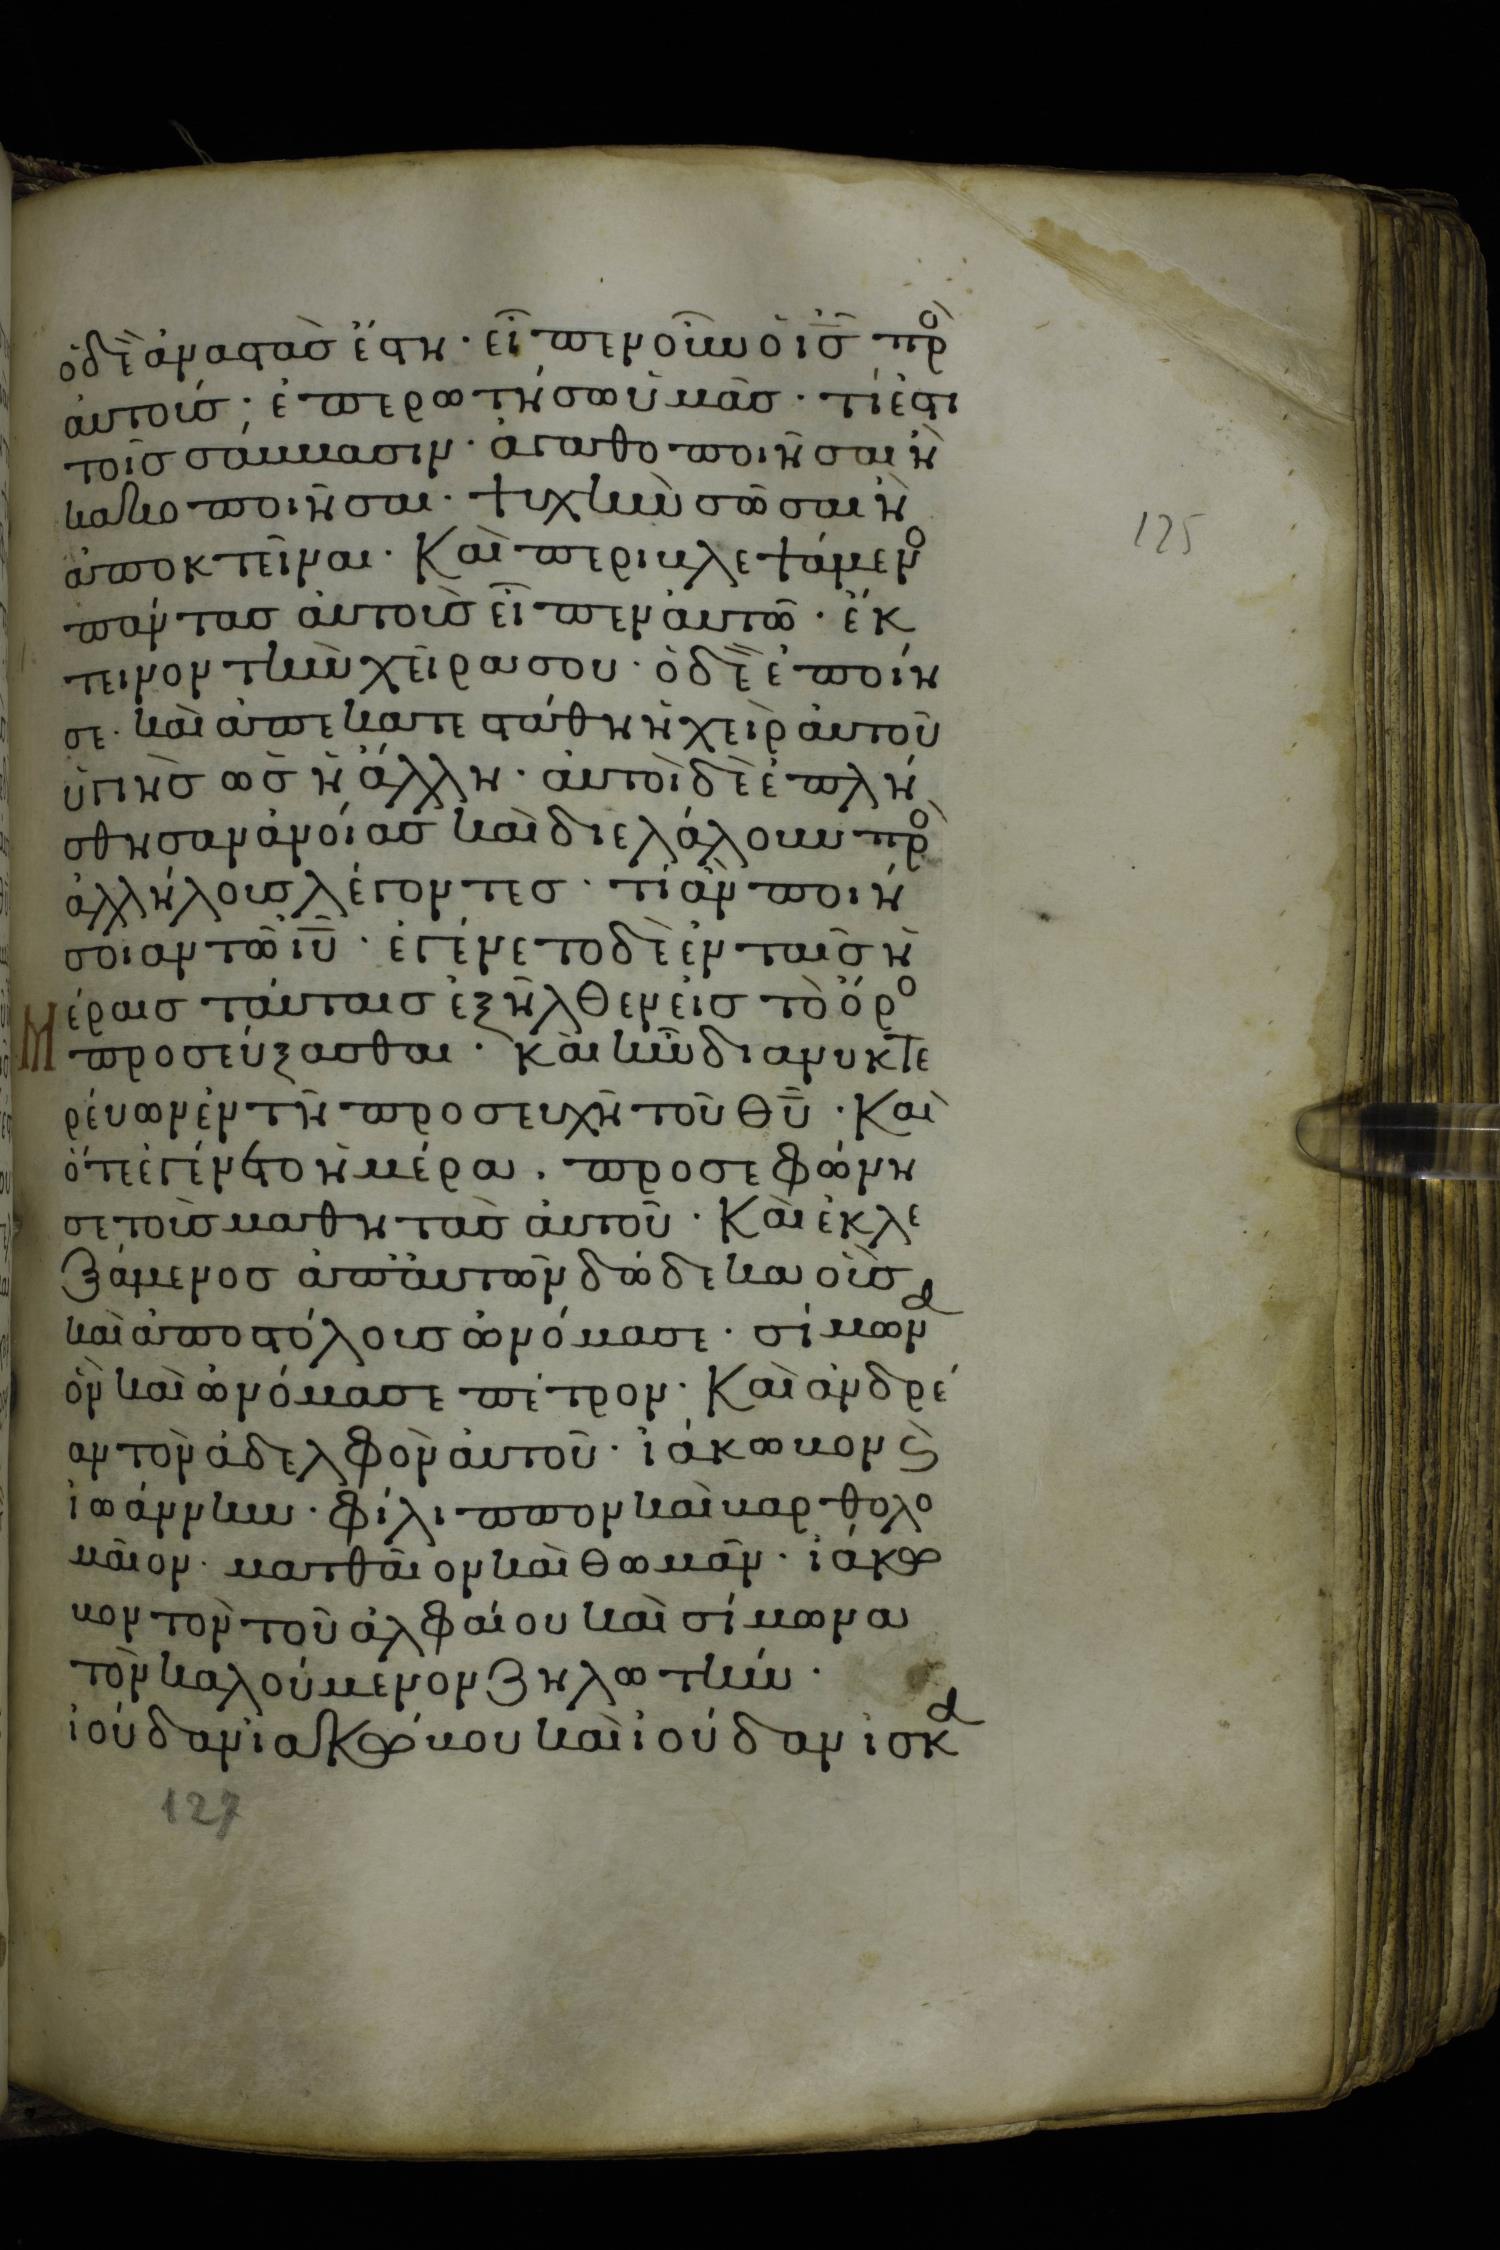 ὁ δὲ ἀναστὰς ἔστη · εἶπεν οὖν ὁ ις̅ πρὸ
αὐτούς; ἐπερωτήσω ὑμᾶς · τί ἔστι
τοῖς σάμμασιν · ἀγαθοποιῆσαι ἢ
κακοποιῆσαι · ψυχὴν σῶσαι ἢ
ἀποκτεῖναι · Καὶ περιβλεψάμενο
πάντας αὐτοὺς εἶπεν αὐτῶ · ἔκ
τεινον τὴν χεῖρα σου · ὁ δὲ ἐποίη
σε · καὶ ἀπεκατεστάθη ἡ χεὶρ αὐτοῦ
ὑγιὴς ὡς ἡ ἄλλη · αὐτοὶ δὲ ἐπλή
σθησαν ἀνοίας καὶ διελάλουν πρὸ
ἀλλήλους λέγοντες · τί ἂν ποιή
σοιαν τῶ ιυ̅ · ἐγένετο δὲ ἐν ταῖς ἡ
μ έραις ταύταις ἐξῆλθεν εἰς τὸ ὄρο
προσεύξασθαι · καὶ ἦν διανυκτε
ρεύων ἐν τῆ προσευχῆ τοῦ θυ̅ · Καὶ
ὅτε ἐγένετο ἡμέρα · προσεφώνη
σε τοὺς μαθητὰς αὐτοῦ · Καὶ ἐκλε
ξάμενος ἀπ' αὐτῶν δώδεκα οὓς
καὶ ἀποστόλους ὠνόμασε · σίμωνα
ὃν καὶ ὠνόμασε πέτρον · Καὶ ἀνδρέ
αν τὸν ἀδελφὸν αὐτοῦ · ἰάκωβον ϗ
ἰωάννην · φίλιππον καὶ βαρθολο
μαῖον · ματθαῖον καὶ θωμᾶν · ἰάκω
βον τὸν τοῦ ἀλφαίου καὶ σίμωνα
τὸν καλούμενον ζηλωτήν ·
ἰούδαν ἰακώβου καὶ ἰούδαν ἰσκα
125
127